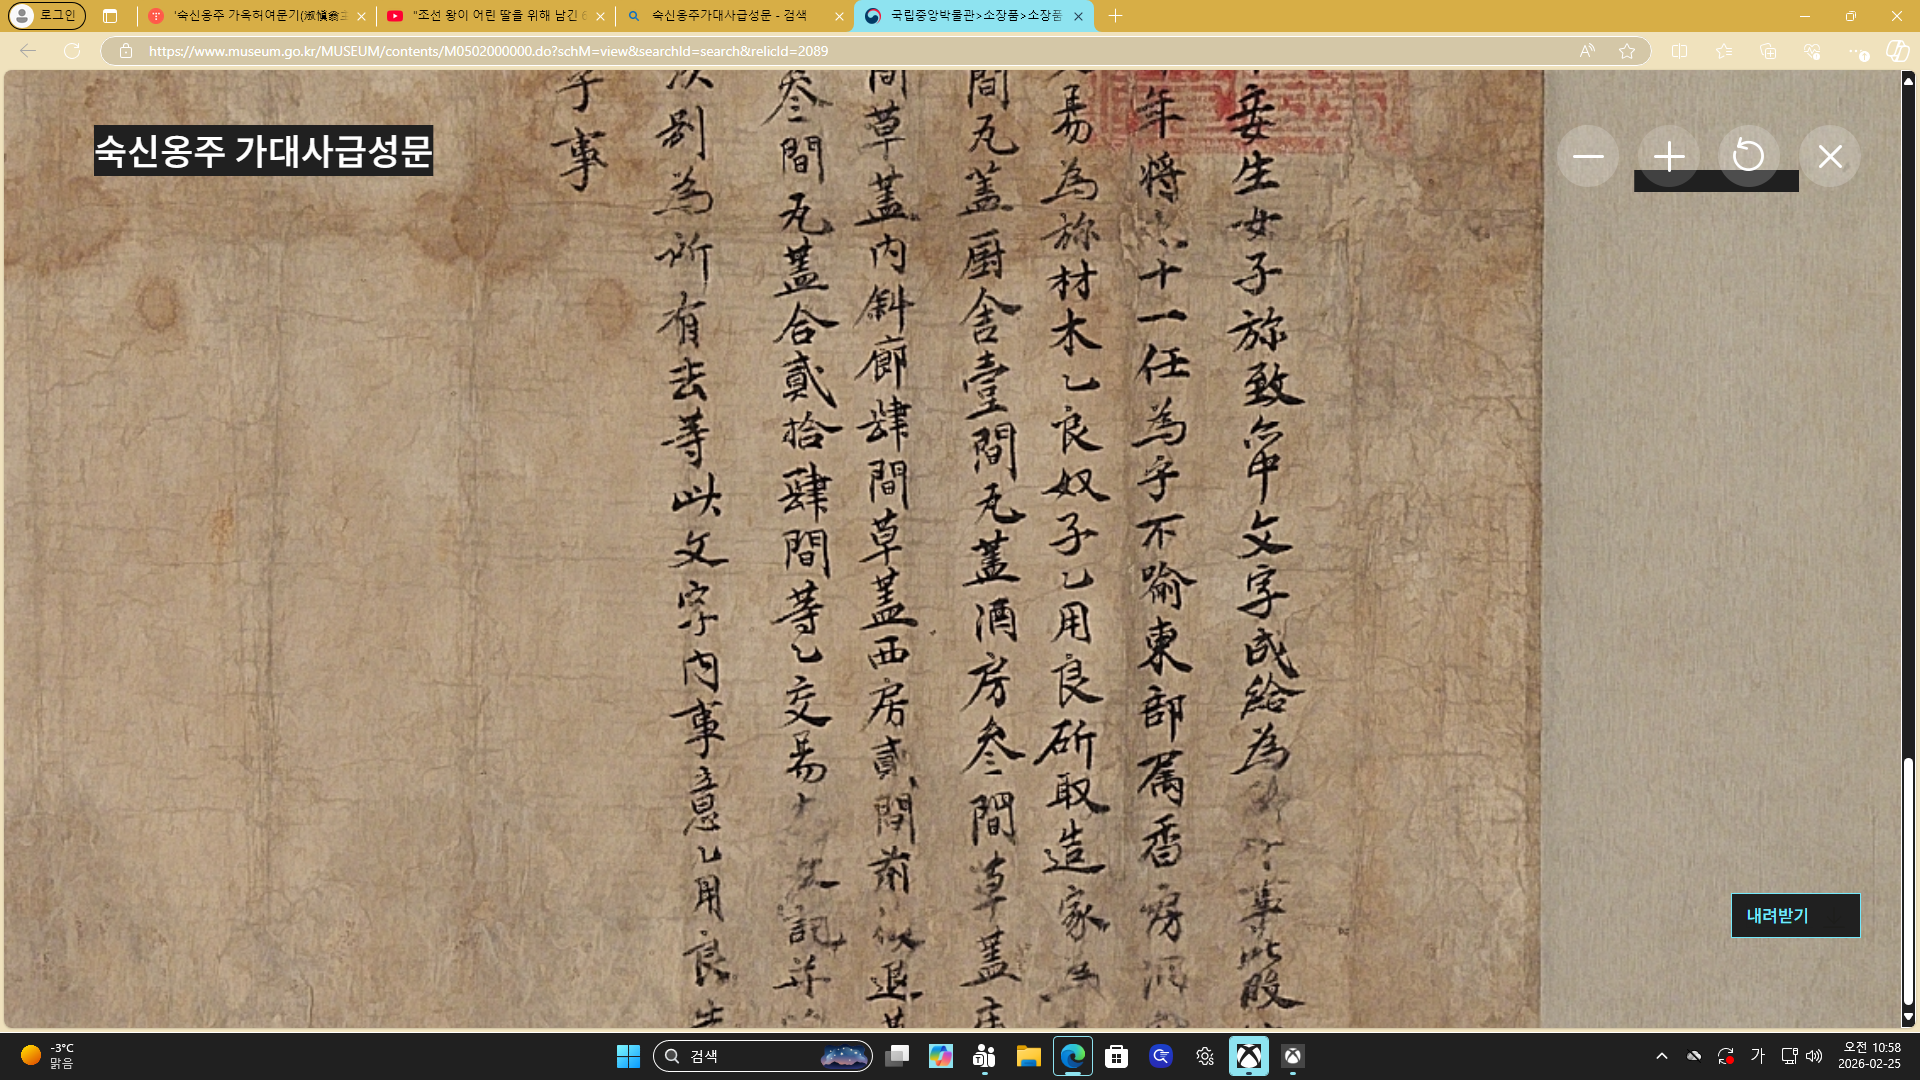 로그인
'숙신옹주 가옥허여문기(淑愼翁主
"조선 왕이 어린 딸을 위해 남긴 6
숙신옹주가대사급성문 - 검색
국립중앙박물관>소장품>소장품
https://www.museum.go.kr/MUSEUM/contents/M0502000000.do?schM=view&searchId=search&relicId=2089
숙신옹주 가대사급성문
妾生女子㫆致命中文字成給為事此段
年將六十一任為乎不喩東部属香房洞
易為㫆材木乙良奴子乙用良斫取造家
間瓦蓋厨舎壹間瓦蓋酒房叄間草蓋庄
間草蓋内斜廊肆間草蓋西房貳間前退草
叄間瓦蓋合貳拾肆間等乙交易記并
次別為所有去等此文字内事意乙用良告
字事
내려받기
-3°C
맑음
검색
가
오전 10:58
2026-02-25